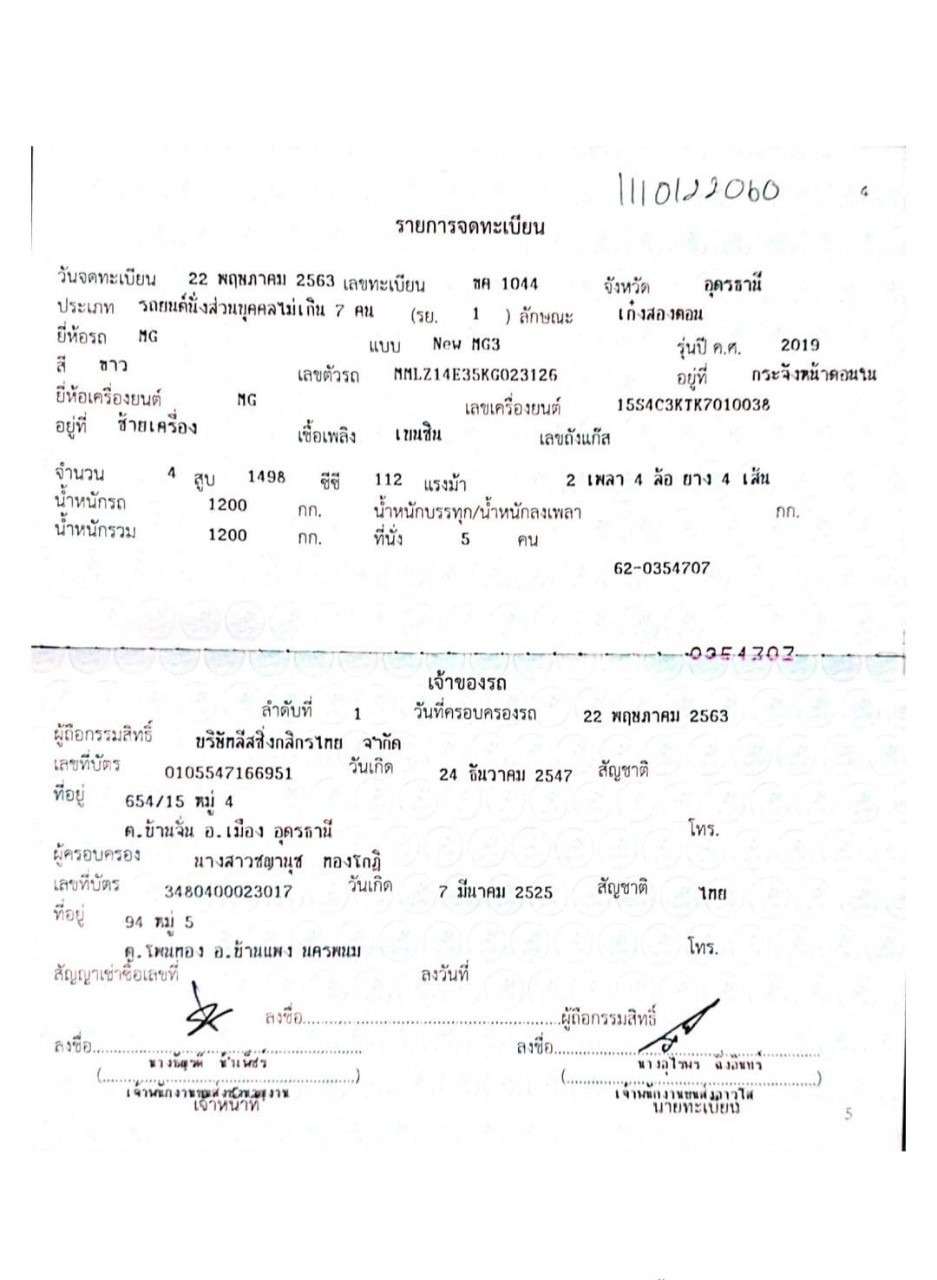 1110122060
รายการจดทะเบียน
วันจดทะเบียน 22 พฤษภาคม 2563 เลขทะเบียน ขค 1044 จังหวัด อุดรธานี
ประเภท รถยนต์นั่งส่วนบุคคลไม่เกิน 7 คน (รย. 1 ) ลักษณะ เก๋งสองตอน
ยี่ห้อรถ MG แบบ New MG3 รุ่นปี ค.ศ. 2019
สี ขาว เลขตัวรถ MMLZ14E35KG023126 อยู่ที่ กระจังหน้าตอนใน
ยี่ห้อเครื่องยนต์ MG เลขเครื่องยนต์ 15S4C3KTK7010038
อยู่ที่ ซ้ายเครื่อง เชื้อเพลิง เบนซิน เลขถังแก๊ส
จำนวน 4 สูบ 1498 ซีซี 112 แรงม้า 2 เพลา 4 ล้อ ยาง 4 เส้น
น้ำหนักรถ 1200 กก. น้ำหนักบรรทุก/น้ำหนักลงเพลา กก.
น้ำหนักรวม 1200 กก. ที่นั่ง 5 คน
62-0354707
0354707
เจ้าของรถ
ลำดับที่ 1 วันที่ครอบครองรถ 22 พฤษภาคม 2563
ผู้ถือกรรมสิทธิ์ บริษัทลีสซิ่งกสิกรไทย จำกัด
เลขที่บัตร 0105547166951 วันเกิด 24 ธันวาคม 2547 สัญชาติ
ที่อยู่ 654/15 หมู่ 4
ต.บ้านจั่น อ.เมือง อุดรธานี โทร.
ผู้ครอบครอง นางสาวชญานุช ทองโกฏิ
เลขที่บัตร 3480400023017 วันเกิด 7 มีนาคม 2525 สัญชาติ ไทย
ที่อยู่ 94 หมู่ 5
ต.โพนทอง อ.บ้านแพง นครพนม โทร.
สัญญาเช่าซื้อเลขที่ ลงวันที่
ลงชื่อ ผู้ถือกรรมสิทธิ์
ลงชื่อ ลงชื่อ
เจ้าหน้าที่ นายทะเบียน
5